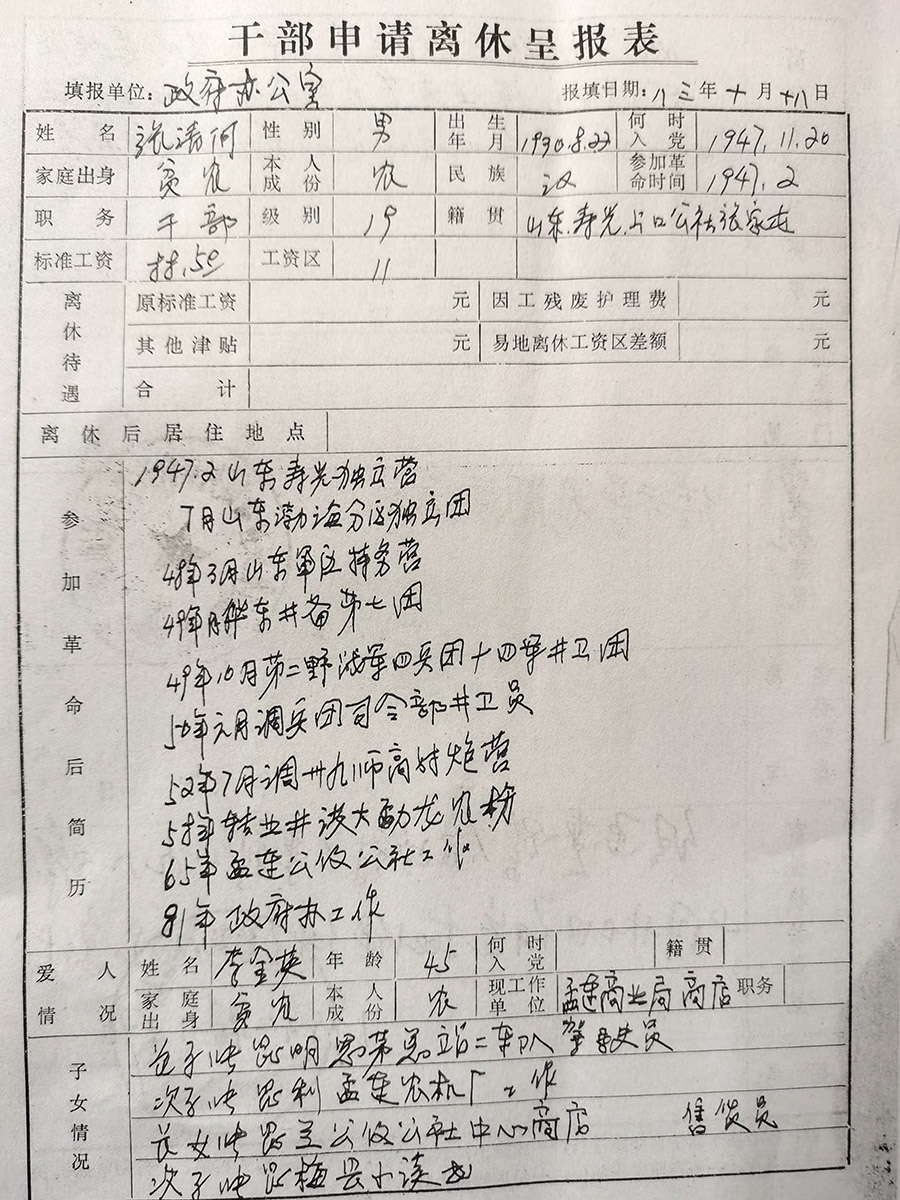 干部申请离休呈报表
填报单位：政府办公室 报填日期：八三年十月十八日
姓名 张清何 性别 男 出生年月 1930.8.22 何时入党 1947.11.20
家庭出身 贫农 本人成份 农 民族 汉 参加革命时间 1947.2
职务 干部 级别 19 籍贯 山东.寿光.上口公社张家庄
标准工资 .50 工资区 11
离休待遇 原标准工资 元 因工残废护理费 元
其他津贴 元 易地离休工资区差额 元
合计
离休后居住地点
参加革命后简历
1947.2山东寿光独立营
7月山东渤海分区独立团
48年3月山东军区特务营
49年 华东井备第七团
49年10月第二野战军四兵团十四军井卫团
50年元月调兵团司令部井卫员
52年7月调卅九师高射炮营
58年转业井 大勐龙农场
65年孟连公伩公社工作
81年政府办工作
爱人情况 姓名 李金英 年龄 45 何时入党 籍贯
家庭出身 贫农 本人成份 农 现工作单位 孟连商业局商店 职务
子女情况
子 昆明思茅总站二车队 驾驶员
次子 昆利孟连农机厂工作
长女 昆兰公伩公社中心商店 售货员
次子 昆梅 小读书